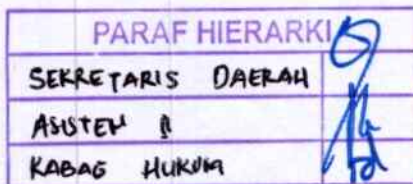 PARAF HIERARKI
SEKRETARIS DAERAH
ASISTEN
KABAG HUKUM